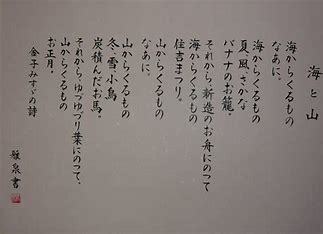 海と山
海からくるもの
なあに。
海からくるもの
夏、風、さかな
バナナのお籠。
それから、新造のお舟にのつて
海からくるもの
住吉まつり。
山からくるもの
なあに。
山からくるもの
冬、雪、小鳥
炭積んだお馬。
それから、ゆづゆづり葉にのつて、
山からくるもの
お正月。
金子みすゞの詩
書